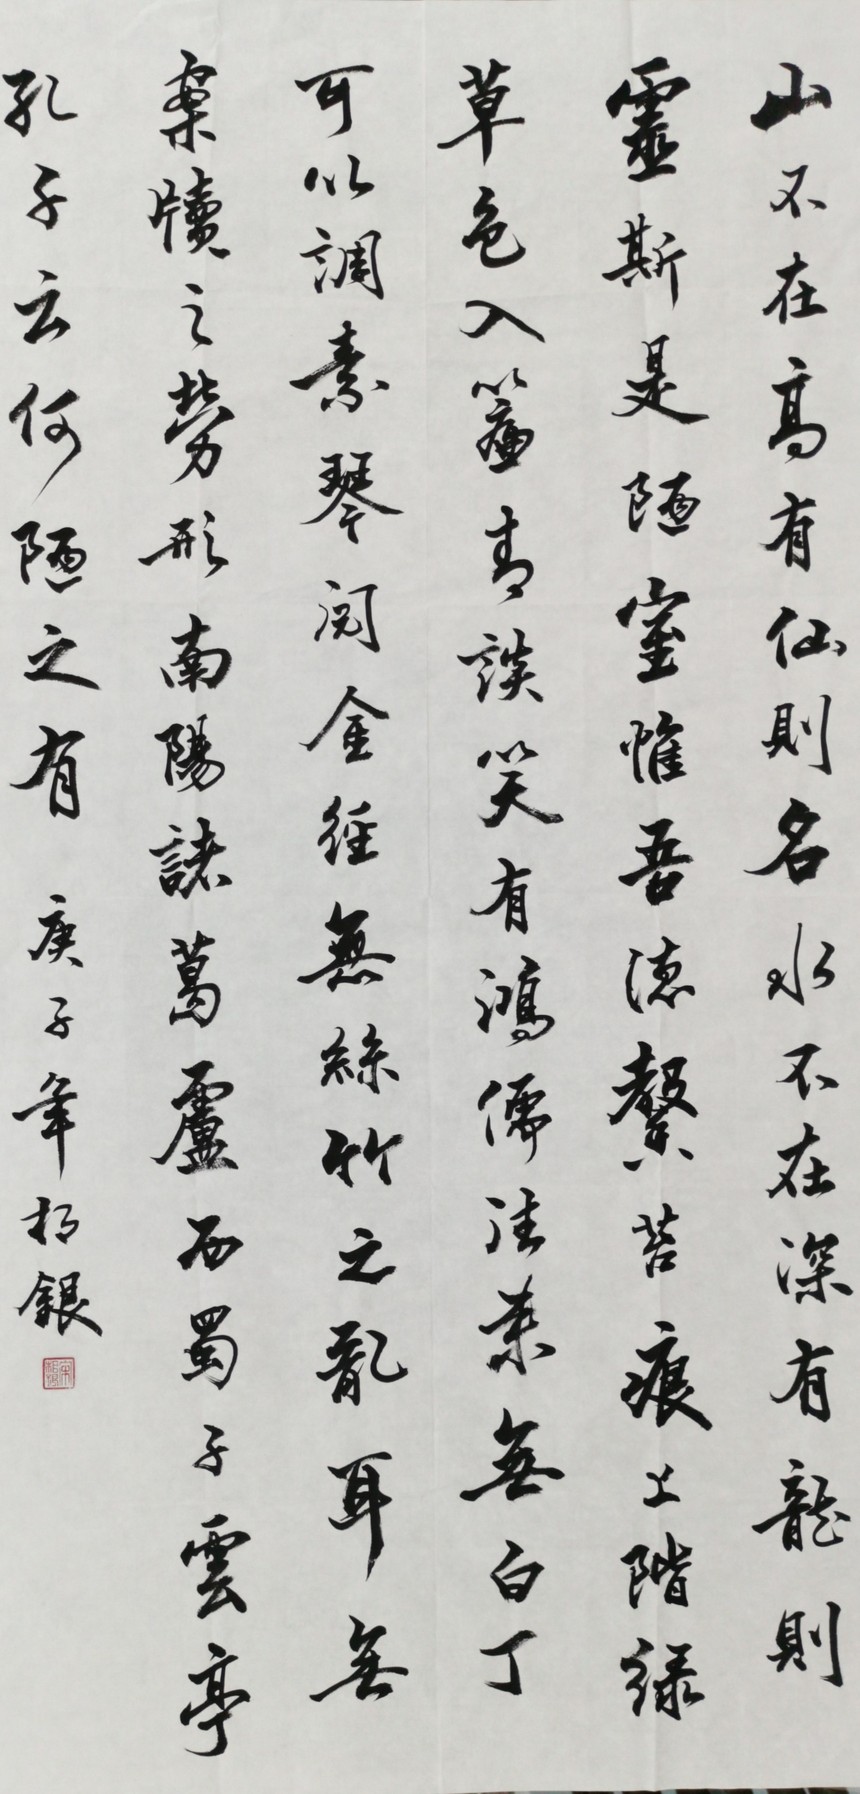 山不在高有仙則名水不在深有龍則
靈斯是陋室惟吾德馨苔痕上階緑
草色入簾青談笑有鴻儒往來無白丁
可以調素琴閱金經無絲竹之亂耳無
案牘之勞形南陽諸葛廬西蜀子雲亭
孔子云何陋之有 庚子年 柏銀